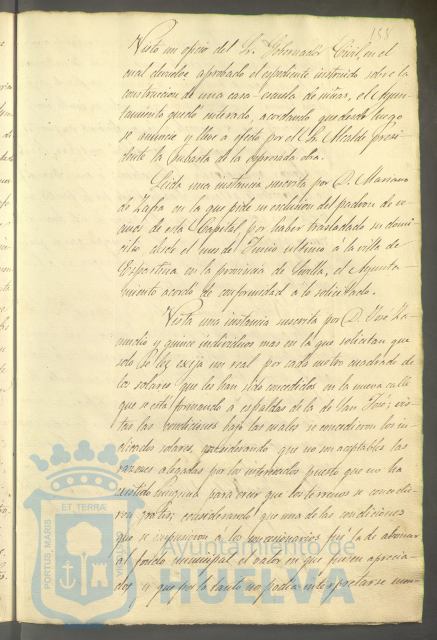 155
Visto un oficio del Sr. Gobernador Civil, en el
cual devuelve aprobado el espediente instruido sobre la
construccion de una casa-escuela de niñas, el Ayun-
tamiento quedó enterado, acordando que desde luego
se anuncie y lleve á efecto por el Sr. Alcalde presi-
dente la subasta de la espresada obra.
Leida una instancia suscrita por D. Mariano
de Zafra en la que pide su exclusion del padron de ve-
cinos de esta Capital por haber trasladado su domi-
cilio desde el mes de Junio ultimo á la villa de
en la provincia de Sevilla, el Ayunta-
miento acordó de conformidad á lo solicitado.
Vista una instancia suscrita por D. José
y quince individuos mas en la que solicitan que
solo se les exija un real por cada metro cuadrado de
los solares que les han sido concedidos en la nueva calle
que se está formando á espaldas de la de San José; vis-
tas las condiciones bajo las cuales se concedieron los in-
dicados solares, considerando que no son aceptables las
razones alegadas por los interesados puesto que no ha
existido ninguna para creer que los terrenos se concedie-
ran gratis; considerando que una de las condiciones
que se impusieron á los concesionarios fué la de abonar
al fondo municipal el valor en que fuesen aprecia-
dos y que por lo tanto no podia interpretarse nun-
PORTUS MARIS
ET TERRÆ
Ayuntamiento de
HUELVA